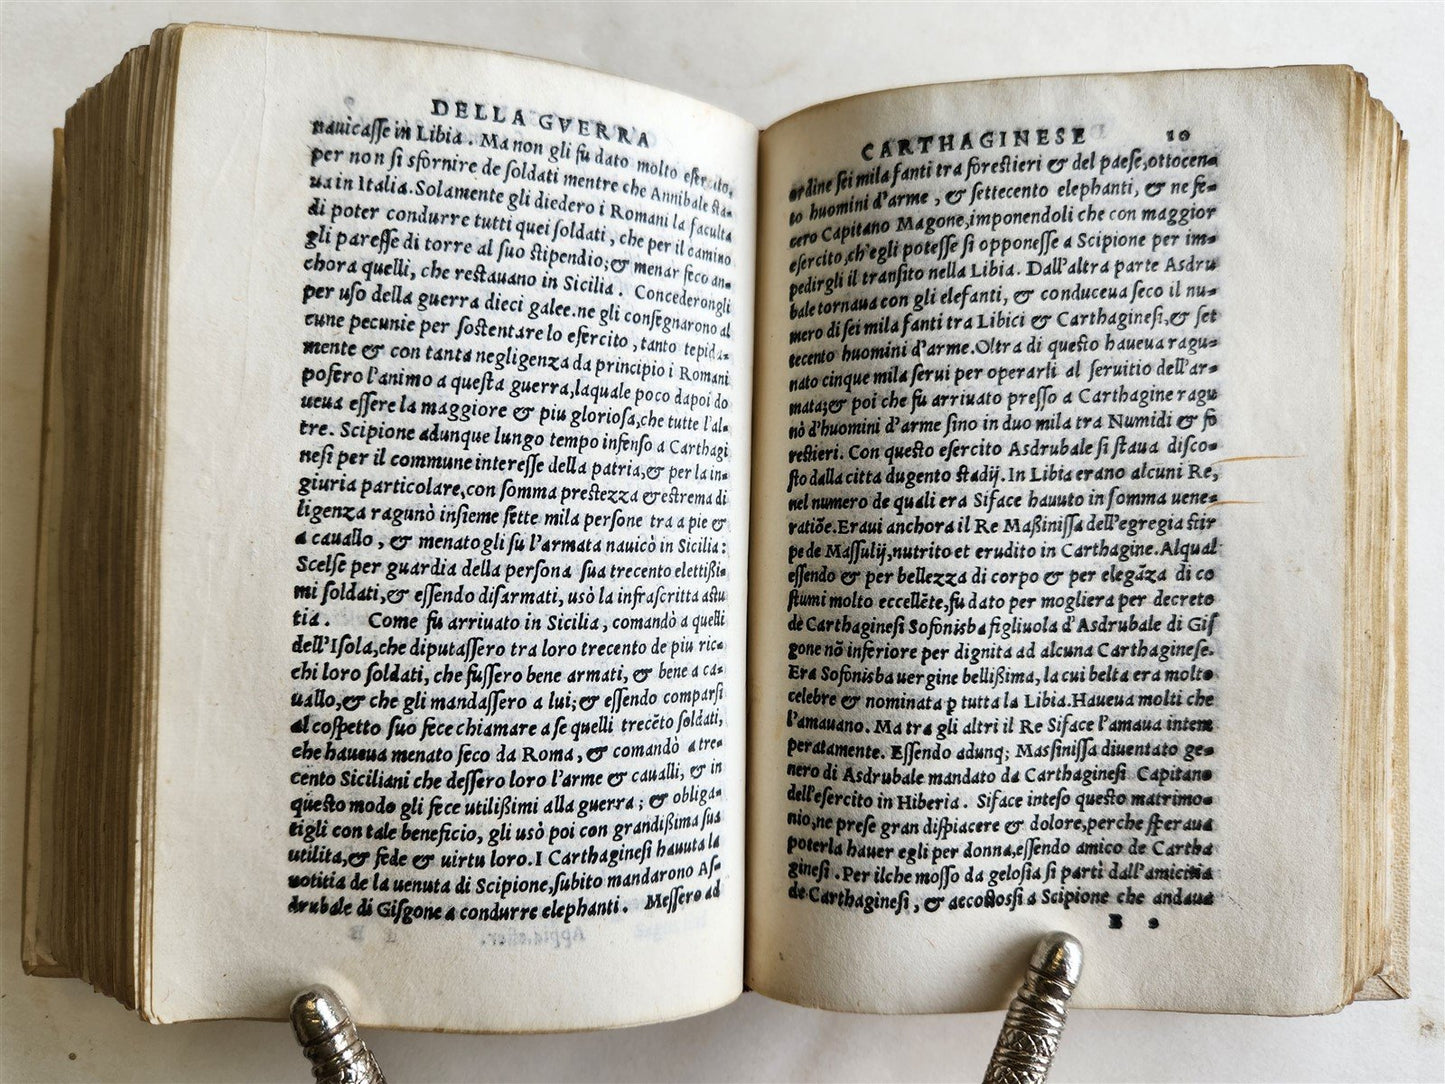 DELLA GVERRA
nauicaſſe in Libia. Ma non gli fu dato molto eſercito,
per non ſi sfornire de ſoldati mentre che Annibale ſta-
ua in Italia. Solamente gli diedero i Romani la faculta
di poter condurre tutti quei ſoldati, che per il camino
gli pareſſe di torre al ſuo ſtipendio; & menar ſeco an-
chora quelli, che reſtauano in Sicilia. Concederongli
per uſo della guerra dieci galee. ne gli conſegnarono al
cune pecunie per ſoſtentare lo eſercito, tanto tepida-
mente & con tanta negligenza da principio i Romani
poſero l'animo a queſta guerra, laquale poco dapoi do
ueua eſſere la maggiore & piu glorioſa, che tutte l'al-
tre. Scipione adunque lungo tempo infenſo a Carthagi
neſi per il commune intereſſe della patria, & per la in-
giuria particolare, con ſomma preſtezza & eſtrema di
ligenza ragunò inſieme ſette mila perſone tra a pie &
a cauallo, & menatogli ſu l'armata nauicò in Sicilia:
Scelſe per guardia della perſona ſua trecento elettißi-
mi ſoldati, & eſſendo diſarmati, usò la infraſcritta aſtu
tia. Come fu arriuato in Sicilia, comandò a quelli
dell'Iſola, che diputaſſero tra loro trecento de piu ric-
chi loro ſoldati, che fuſſero bene armati, & bene a ca-
uallo, & che gli mandaſſero a lui; & eſſendo comparſi
al coſpetto ſuo fece chiamare a ſe quelli trecēto ſoldati,
che haueua menato ſeco da Roma, & comandò a tre-
cento Siciliani che deſſero loro l'arme & caualli, & in
queſto modo gli fece utilißimi alla guerra; & obliga-
tigli con tale beneficio, gli usò poi con grandißima ſua
utilita, & fede & uirtu loro. I Carthagineſi hauuta la
notitia de la uenuta di Scipione, ſubito mandarono Aſ-
drubale di Giſgone a condurre elephanti. Meſſero ad
CARTHAGINESE 10
ordine ſei mila fanti tra foreſtieri & del paeſe, ottocen-
to huomini d'arme, & ſettecento elephanti, & ne fe-
cero Capitano Magone, imponendoli che con maggior
eſercito, ch'egli poteſſe ſi opponeſſe a Scipione per im-
pedirgli il tranſito nella Libia. Dall'altra parte Asdru
bale tornaua con gli elefanti, & conduceua ſeco il nu-
mero di ſei mila fanti tra Libici & Carthagineſi, & ſet
tecento huomini d'arme. Oltra di queſto haueua ragu-
nato cinque mila ſerui per operarli al ſeruitio dell'ar-
mata; & poi che fu arriuato preſſo a Carthagine ragu
nò d'huomini d'arme ſino in duo mila tra Numidi & fo
reſtieri. Con queſto eſercito Asdrubale ſi ſtaua diſco-
ſto dalla citta dugento ſtadij. In Libia erano alcuni Re,
nel numero de quali era Siface hauuto in ſomma uene-
ratiõe. Eraui anchora il Re Maßiniſſa dell'egregia ſtir
pe de Maſſulij, nutrito et erudito in Carthagine. Alqual
eſſendo & per bellezza di corpo & per elegāza di co
ſtumi molto eccellēte, fu dato per mogliera per decreto
de Carthagineſi Sofonisba figliuola d'Asdrubale di Giſ
gone nõ inferiore per dignita ad alcuna Carthagineſe.
Era Sofonisba uergine bellißima, la cui belta era molto
celebre & nominata ꝑ tutta la Libia. Haueua molti che
l'amauano. Ma tra gli altri il Re Siface l'amaua intem
peratamente. Eſſendo adunq; Maſſiniſſa diuentato ge-
nero di Asdrubale mandato da Carthagineſi Capitano
dell'eſercito in Hiberia. Siface inteſo queſto matrimo-
nio, ne preſe gran diſpiacere & dolore, perche ſperaua
poterla hauer egli per donna, eſſendo amico de Cartha
gineſi. Per ilche moſſo da geloſia ſi partì dall'amicitia
de Carthagineſi, & accoſtoſſi a Scipione che andaua
B 2